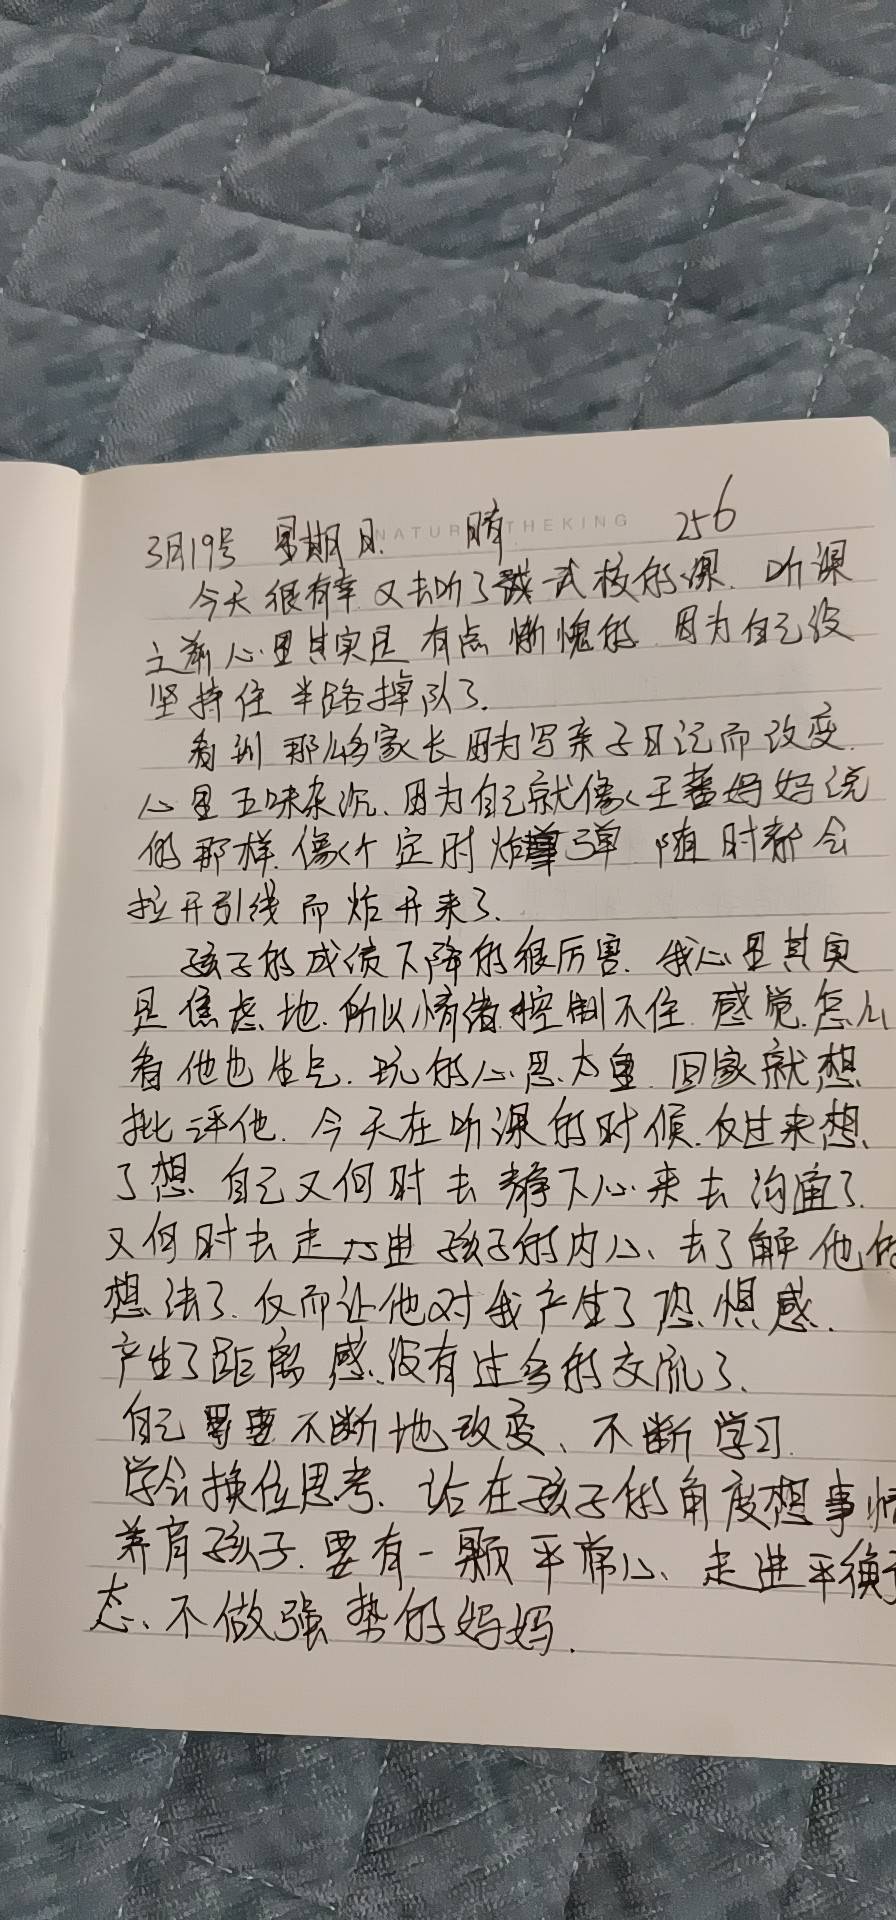 3月19号 星期日 晴 256
NATUR THEKING
今天很有幸又去听了武校的课.听课
之前心里其实是有点惭愧的.因为自己没
坚持住半路掉队了.
看到那么多家长因为写亲子日记而改变.
心里五味杂沉.因为自己就像王蕾妈妈说
的那样.像个定时炸弹 随时都会
拉开引线而炸开来了.
孩子的成绩下降的很厉害.我心里其实
是焦虑地.所以情绪控制不住.感觉怎么
看他也生气.玩的心思太重.回家就想
批评他.今天在听课的时候.反过来想
了想.自己又何时去静下心来去沟通了.
又何时去走进孩子的内心、去了解他的
想法了.反而让他对我产生了恐惧感.
产生了距离感、没有过多的交流了.
自己要不断地改变、不断学习.
学会换位思考、站在孩子的角度想事情
养育孩子.要有一颗平常心、走进平衡
态、不做强势的妈妈.